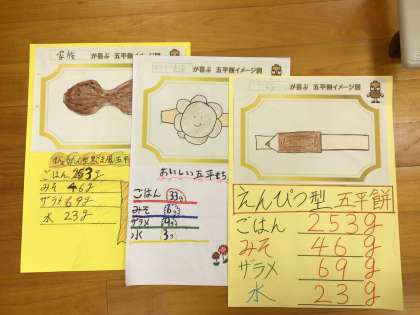 家族 が喜ぶ 五平餅イメージ図
ごはん 253g
みそ 46g
ザラメ 69g
水 23g
が喜ぶ 五平餅イメージ図
おいしい五平もち
ごはん 33g
みそ 6g
ザラメ 9g
水 3g
が喜ぶ 五平餅イメージ図
えんぴつ型 五平餅
ごはん 253g
みそ 46g
ザラメ 69g
水 23g